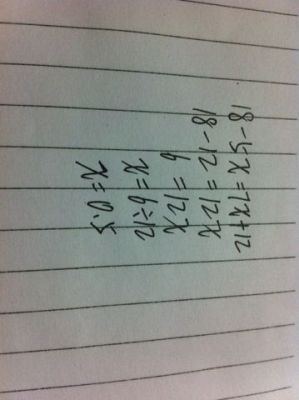 18-5x=7x+12
18-12=12x
6=12x
x=6÷12
x=0.5